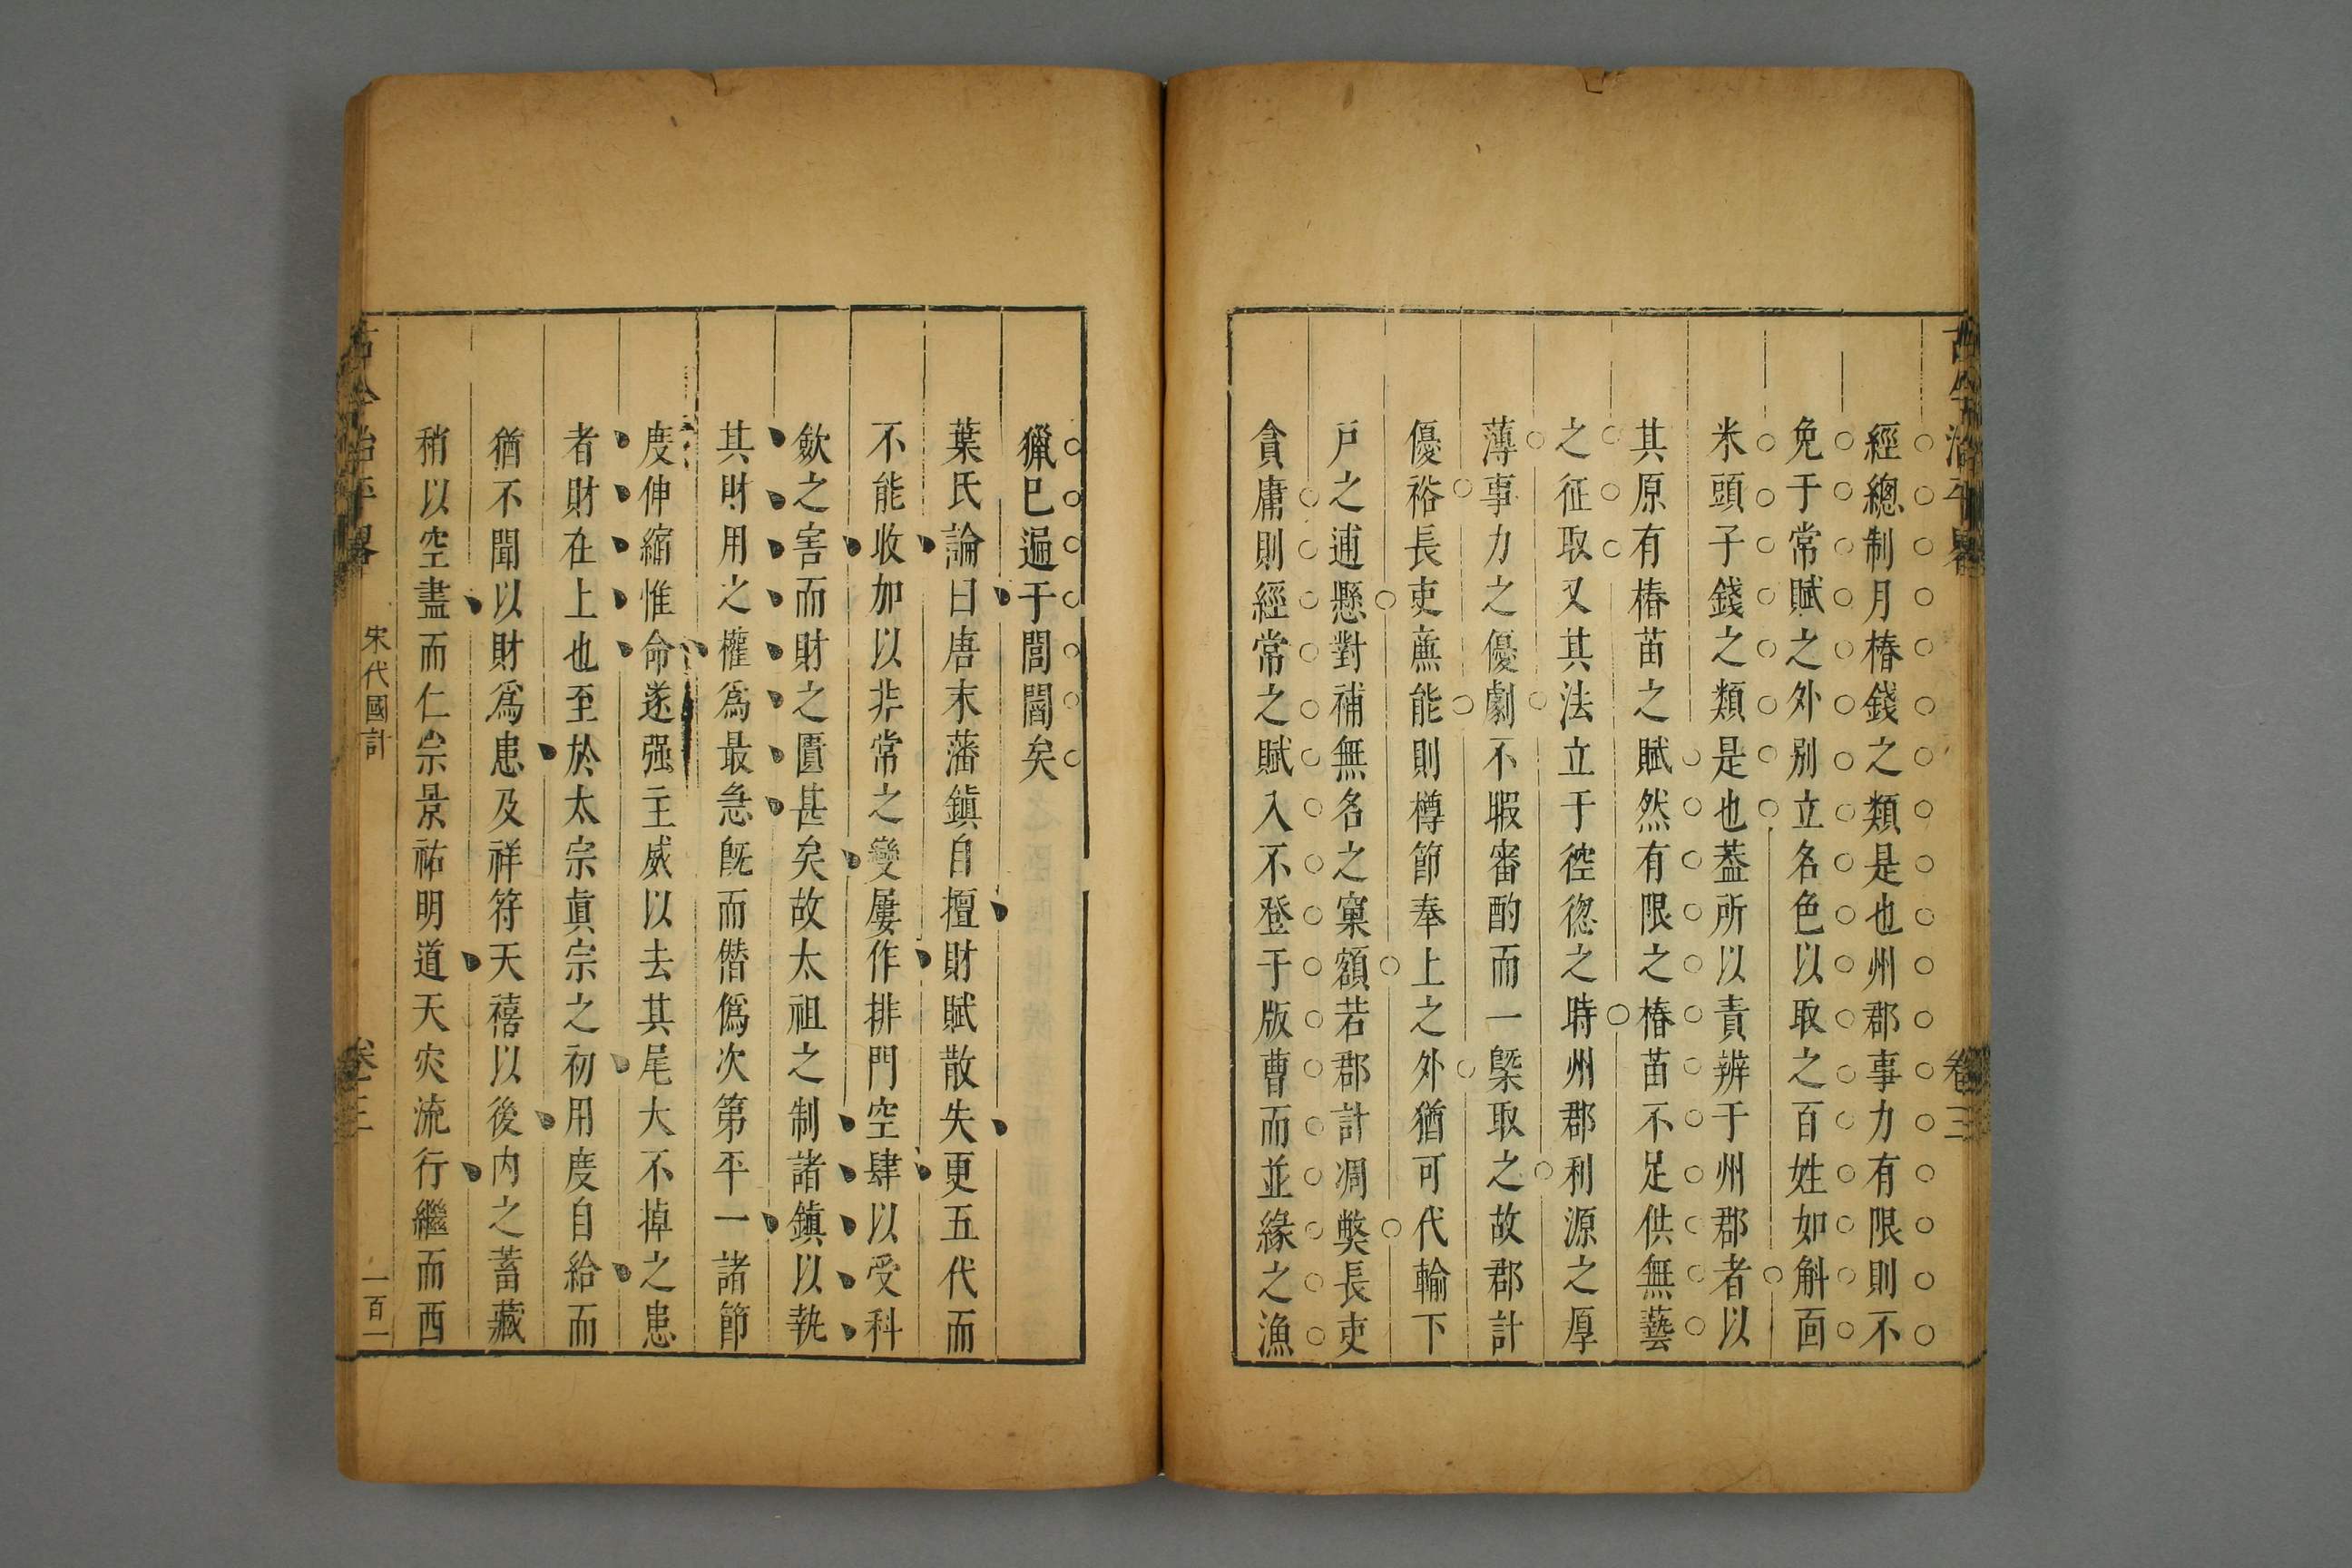 古今治平畧 卷三
經總制月樁錢之類是也州郡事力有限則不
免于常賦之外别立名色以取之百姓如斛面
米頭子錢之類是也葢所以責辨于州郡者以
其原有樁苗之賦然有限之樁苗不足供無藝
之征取又其法立于倥偬之時州郡利源之厚
薄事力之優劇不暇審酌而一槩取之故郡計
優裕長吏㢘能則樽節奉上之外猶可代輸下
戸之逋懸對補無名之窠額若郡計凋獘長吏
貪庸則經常之賦入不登于版曹而並緣之漁
獵巳遍于閭閻矣
葉氏論曰唐末藩鎮自擅財賦散失更五代而
不能收加以非常之變屢作排門空肆以受科
歛之害而財之匱甚矣故太祖之制諸鎮以執
其財用之權爲最急旣而僭僞次第平一諸節
度伸縮惟命遂强主威以去其尾大不掉之患
者財在上也至於太宗眞宗之初用度自給而
猶不聞以財爲患及祥符天禧以後内之蓄藏
稍以空盡而仁宗景祐明道天灾流行繼而西
古今治平畧 宋代國計 卷三 一百一